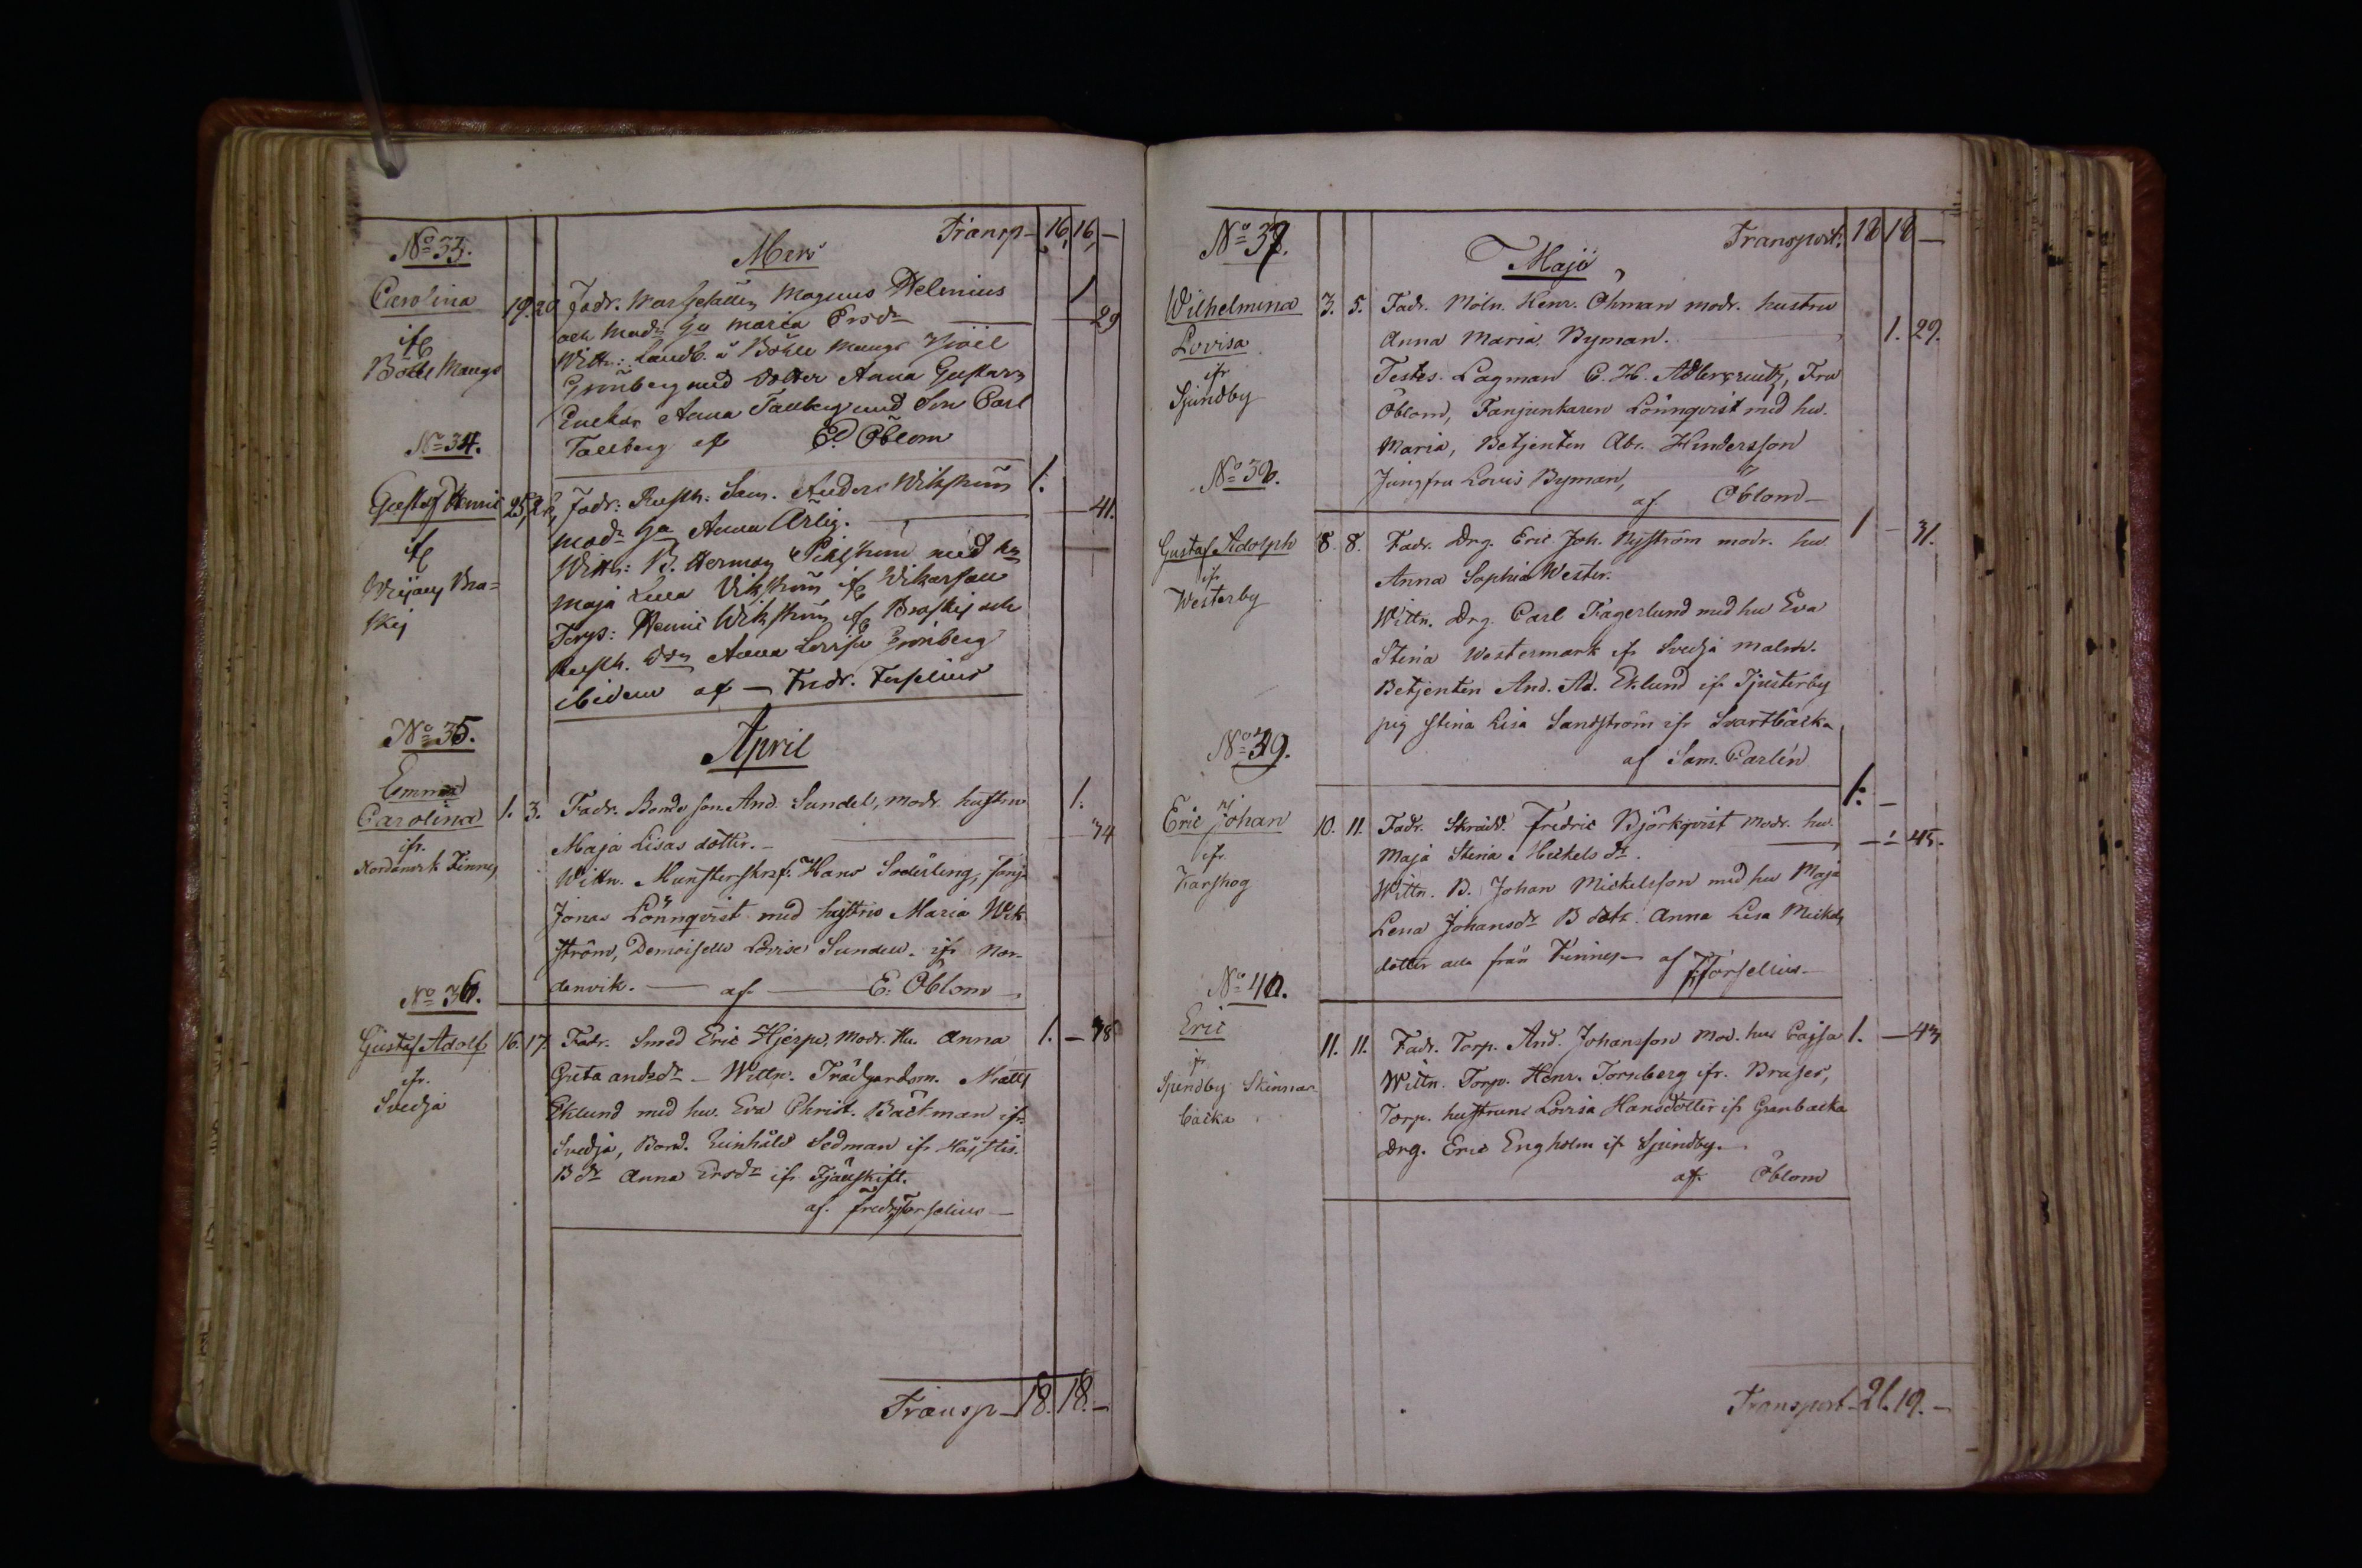 Transp 16, 16, —
Mars
No 33.
Carolina 19. 20 Fadr. Magnus Helenius
och Modr. Maria Ersdr 1 29
ifr Wittn: Landb. å Böhle Mangs
Böhle Mangs Grönberg med dotter Anna Gustava
Enckan Anna Tallberg med Son Carl
Tallberg af Ed Öblom
No 34.
Gustaf Henric 25, 26, Fadr: Rusth: Son. Anders Wikström 1.
modr Hu Anna Arlig. 41.
ifr Wittn: B. Herman Wikström med hu
Maja Lena Wikström ifr
skij Torp: Henric Wikström ifr Braskij och
Rusth. Anna Lovisa Grönberg
ibidem af — Fredr. Forselius
No 35.
April
Emma
Carolina 1. 3. Fadr. Bonde son And. Sundel, modr. hustru 1.
ifr. Maja Lisas dotter. — 34
Nordanvik Finnes Wittn. Munsterskrif. Hans Söderling,
Jonas Lönnqvist med hustru Maria Wik
ström, Demoiselle Lovise Sundell. ifr Nor-
danvik. — af — E: Öblom
No 36.
Gustaf Adolf 16. 17. Fadr. Smed Eric Hjerpe, Modr. Hu. Anna 1. — 38
ifr. Greta andsdr — Wittn. Trädgårdsm. Matts
Svedja Eklund med hu. Eva Christ. Bäckman ifr.
Svedja, Bond. Reinhold Sedman ifr
B dr Anna Ersdr ifr
af. Fredr Forselius —
Transp — 18. 18. —
No 37.
Transport. 18 18 —
Maji
Wilhelmina 3. 5. Fadr. Möln. Henr. Öhman modr. hustru
Lovisa Anna Maria Byman. 1. 29.
ifr Testes. Lagman C. H. Adlercreutz, Fru
Sjundby Öblom, Fanjunkaren Lönnqvist med hu.
Maria, Betjenten Abr. Hindersson
Jungfru Lovis Byman,
af Öblom —
No 38.
Gustaf Adolph 8. 8. Fadr. Drg. Eric Joh. Nyström modr. hu 1 — 31.
ifr Anna Sophia Wester.
Westerby Wittn. Drg. Carl Fagerlund med hu Eva
Stina Westermark ifr Svedja malm.
Betjenten And. Ad. Eklund ifr Tjusterby
pig Stina Lisa Sandström ifr Svartbäcka
af Sam. Carlén
No 39.
Eric Johan 10. 11. Fadr. Skrädd. Fredric Björkqvist Modr. hu. 1. —
ifr Maja Stina Mickels dr. 45.
Karskog Wittn. B. Johan Mickelsson med hu Maja
Lena Johansdr B dotr. Anna Lisa Mickels
dotter alla från Kinnes — af F Forselius —
No 40.
Eric 11. 11. Fadr. Torp. And. Johansson Mod. hu Cajsa 1. — 43
ifr Wittn. Torp. Henr. Tornberg ifr.
Sjundby Skinnar Torp. hustrun Lovisa Hansdotter ifr Granbacka
backa Drg. Eric Engholm ifr Sjundby.
af. Öblom
Transport — 21. 19. —